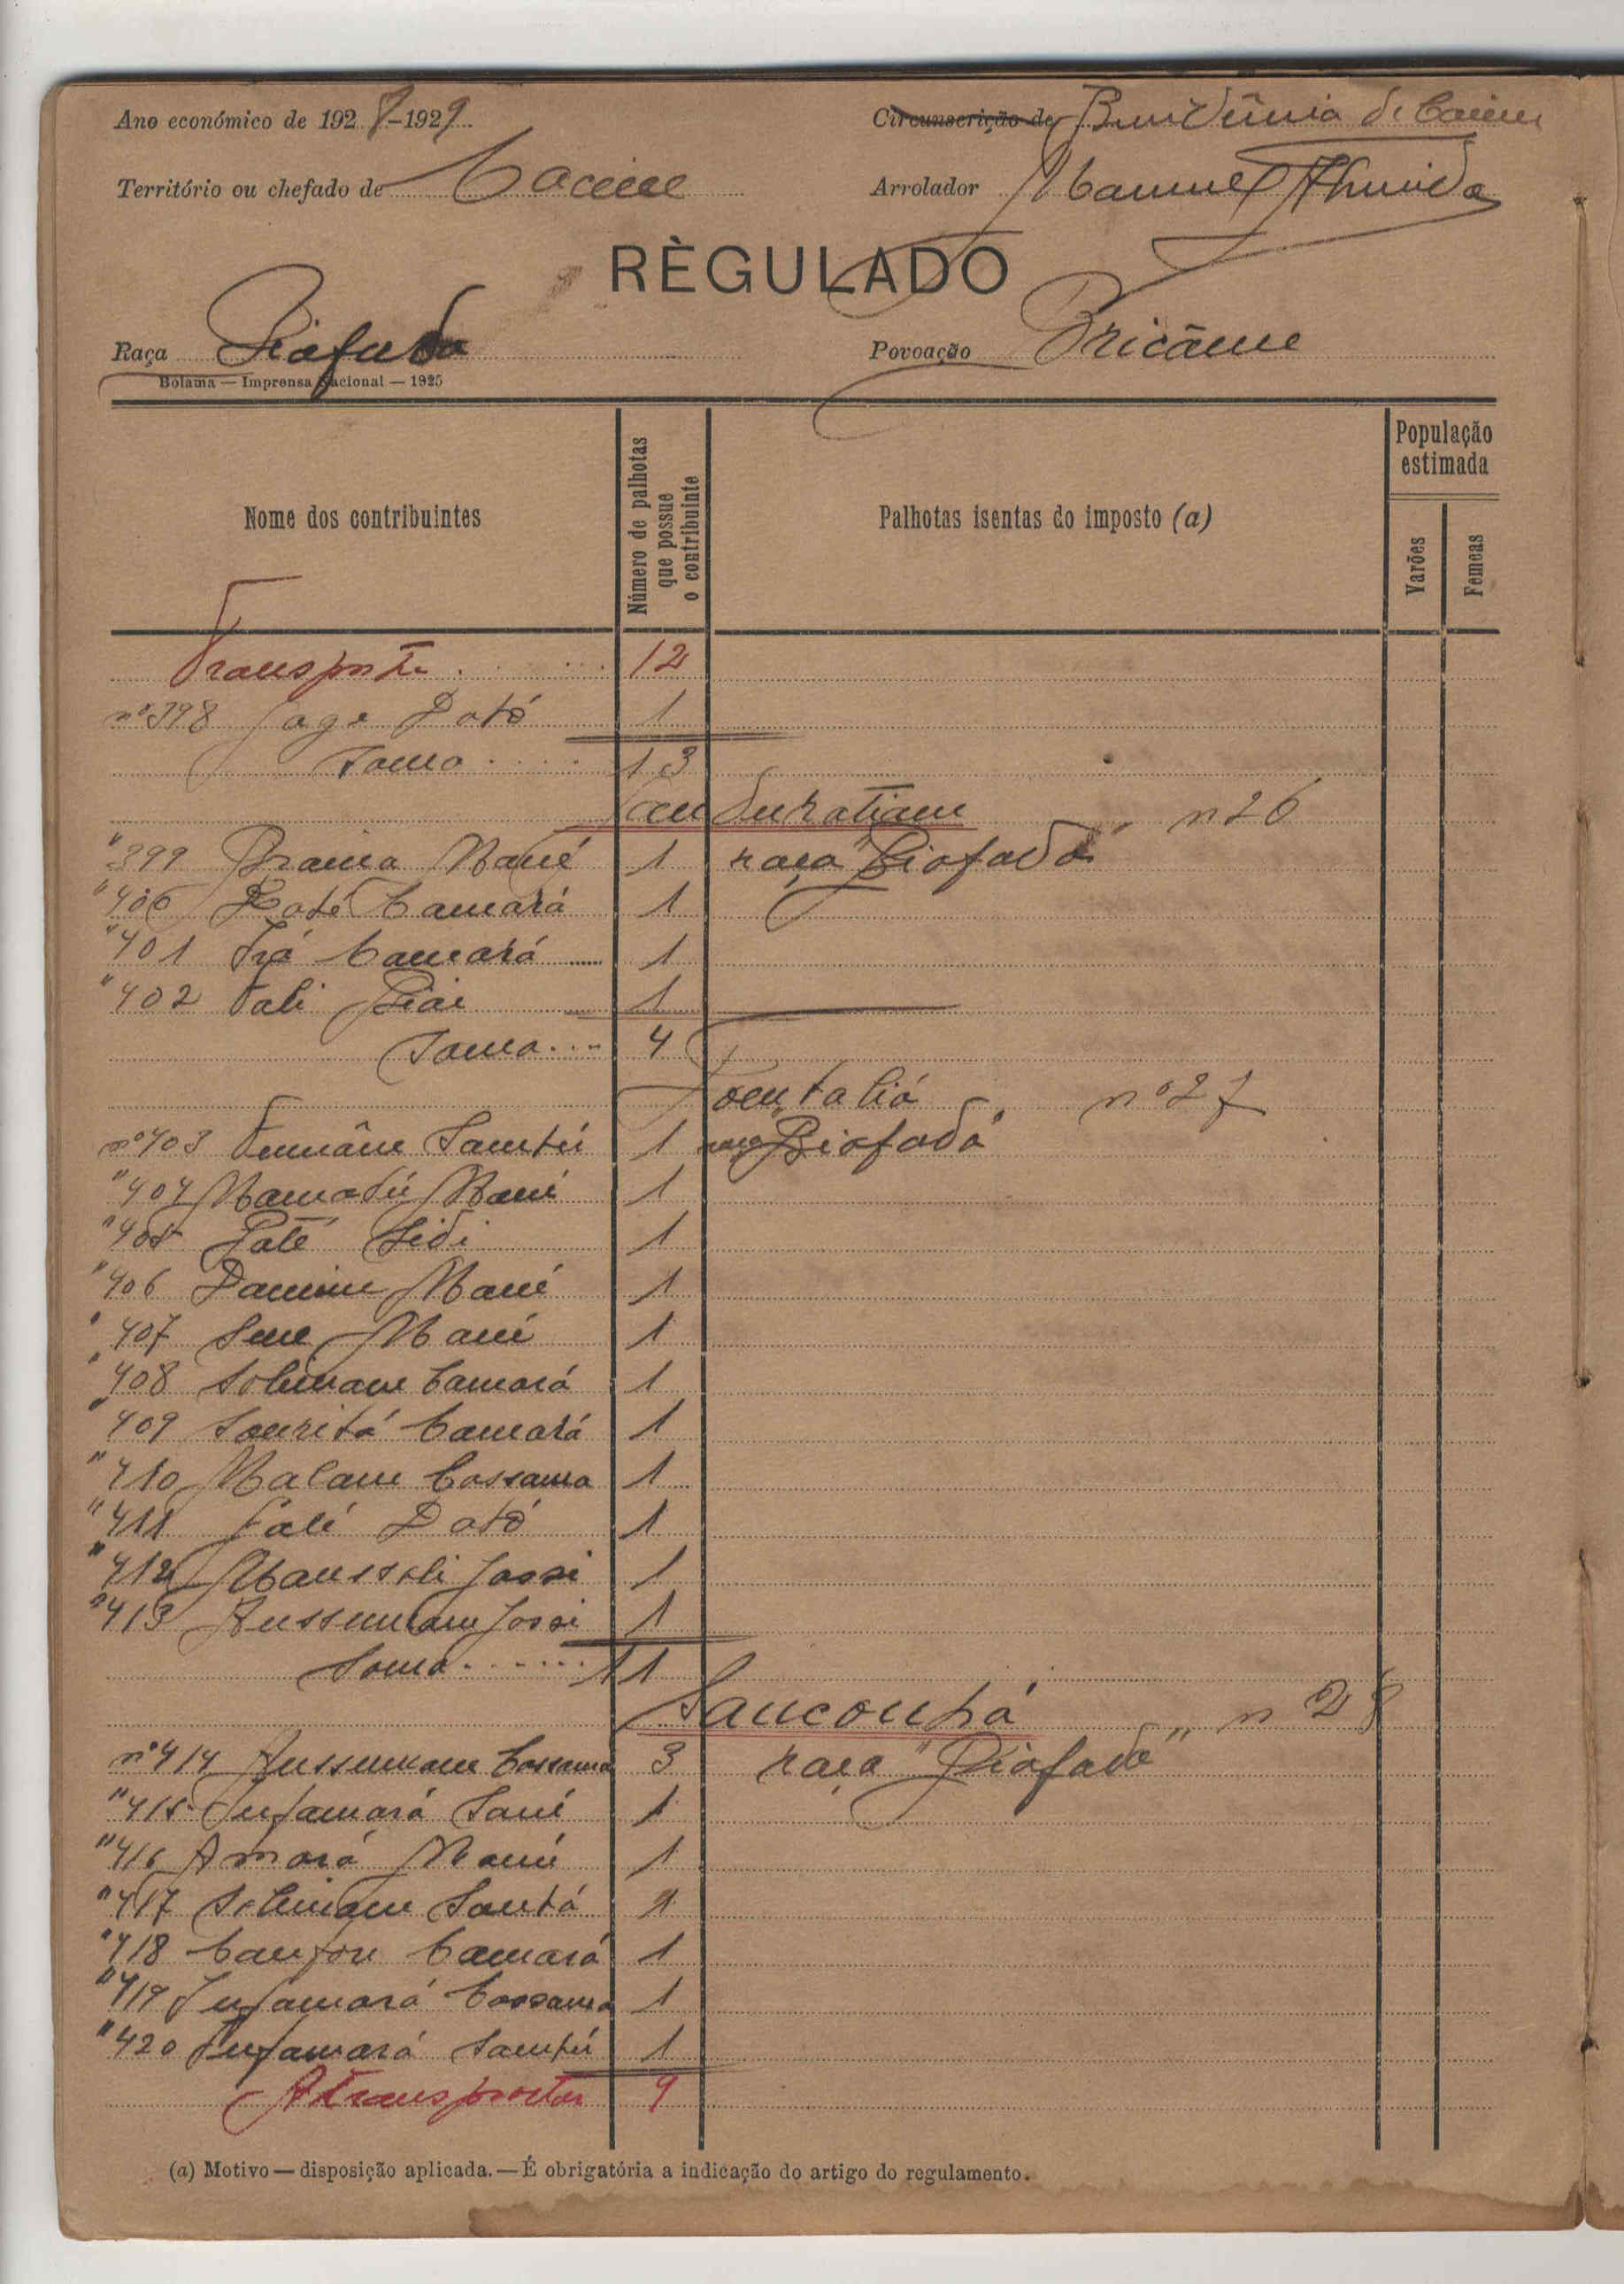 Ano económico de 1928-1929
Circunscrição de Residência de Cacine
Território ou chefado de Cacine
Arrolador Manuel Almeida
RÈGULADO
Raça Biafada
Povoação Bricâme
Bolama — Imprensa Nacional — 1925
Nome dos contribuintes
Número de palhotas que possue o contribuinte
Palhotas isentas do imposto (a)
População estimada
Varões
Femeas
Transporte 12
nº 398 Jage Dotó 1
Soma 13
n 26
" 399 Braima Mané 1 raça "Biafada"
" 400 Camará 1
" 401 Irá Camará 1
" 402 Tali Biai 1
Soma 4
nº 27
nº 403 Sambú 1 raça "Biafada"
" 404 Mamadú Mané 1
" 405 Paté Sidi 1
" 406 Mané 1
" 407 Mané 1
" 408 Solimane Camará 1
" 409 Camará 1
" 410 Malam Cassama 1
" 411 Dotó 1
" 412 Mansali Jassi 1
" 413 Aussumane Jassi 1
Soma 11
n 28
nº 414 Aussumane Cassama 3 raça "Biafada"
" 415 Infamará Sané 1
" 416 Amará Mané 1
" 417 Solimane 1
" 418 Camará 1
" 419 Infamará Cassama 1
" 420 Infamará Sambú 1
A transportar 9
(a) Motivo — disposição aplicada. — É obrigatória a indicação do artigo do regulamento.